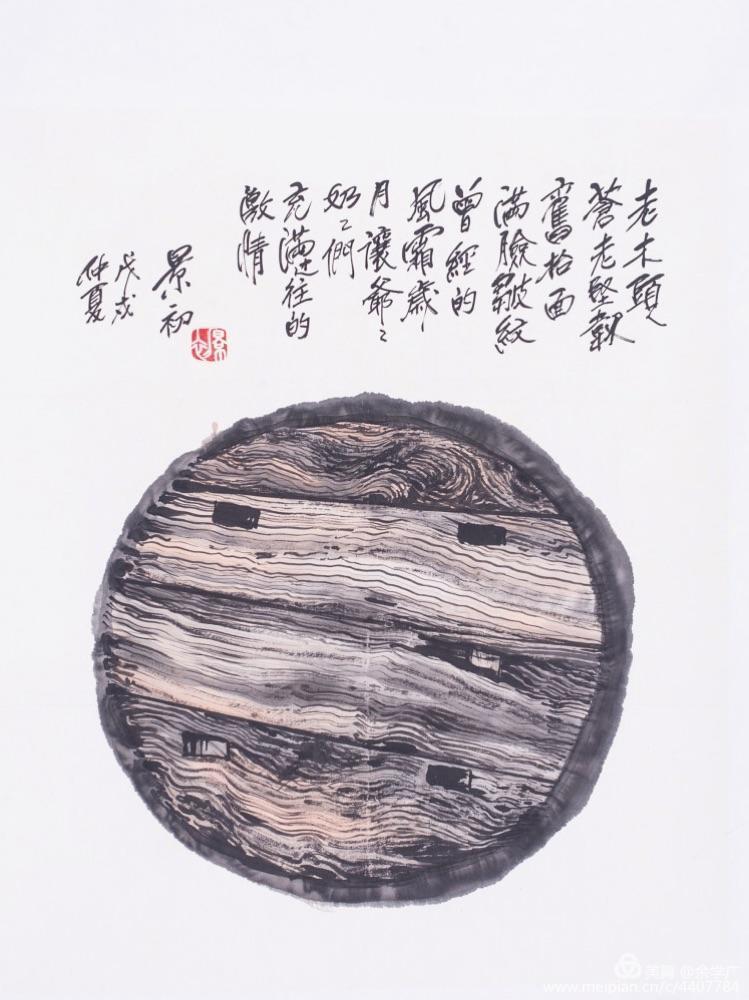 老木頭
蒼老堅韌
舊拾面
滿臉皺紋
曾經的
風霜歲
月讓爺〻
奶〻們
充滿过往的
激情
景初
戊戌
仲夏
美篇 @余学广
www.meipian.cn/c/4407784